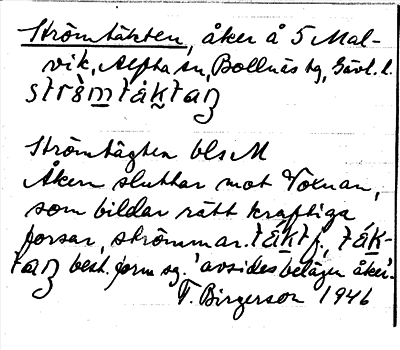 Strömtäkten, åker å 5 Mal-
vik, Alfta sn, Bollnäs tg, Gävl. l.
Strömtägten bls M
Åkern sluttar mot Voxnan,
som bildar rätt kraftiga
forsar, strömmar. f.,
best. form sg. 'avsides belägen åker'.
F. Birgerson 1946